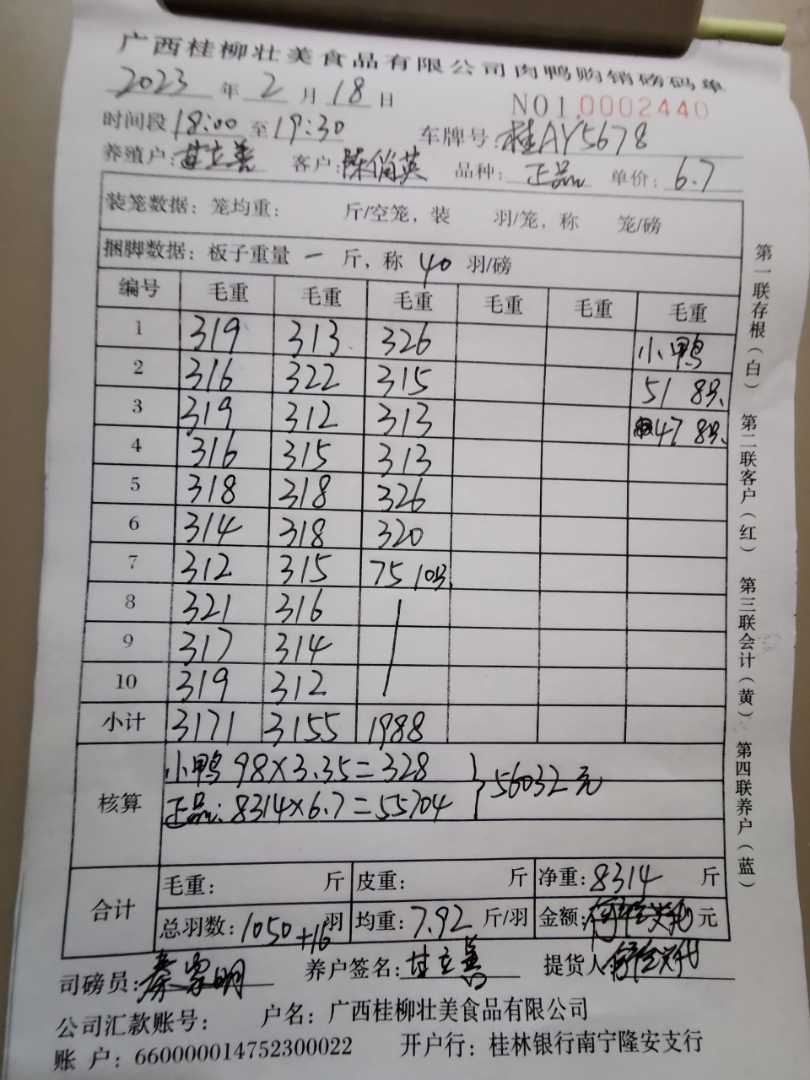 广西桂柳壮美食品有限公司肉鸭购销磅码单
2023 年 2 月 18 日 NO1.0002440
时间段 18:00 至 19:30 车牌号: 桂AY5678
养殖户: 甘立善 客户: 陈俏英 品种: 正品 单价: 6.7
装笼数据: 笼均重: 斤/空笼, 装 羽/笼, 称 笼/磅
捆脚数据: 板子重量 一 斤, 称 40 羽/磅
编号 毛重 毛重 毛重 毛重 毛重 毛重
1 319 313 326 小鸭
2 316 322 315 51 8只
3 319 312 313 47 8只
4 316 315 313
5 318 318 326
6 314 318 320
7 312 315 75 10只
8 321 316
9 317 314
10 319 312
小计 3171 3155 1988
核算 小鸭 98×3.35=328
正品: 8314×6.7=55704 }56032元
合计 毛重: 斤 皮重: 斤 净重: 8314 斤
总羽数: 1050+16 羽 均重: 7.92 斤/羽 金额: 元
司磅员: 养户签名: 甘立善 提货人
公司汇款账号: 户名: 广西桂柳壮美食品有限公司
账 户: 660000014752300022 开户行: 桂林银行南宁隆安支行
第一联存根(白) 第二联客户(红) 第三联会计(黄) 第四联养户(蓝)